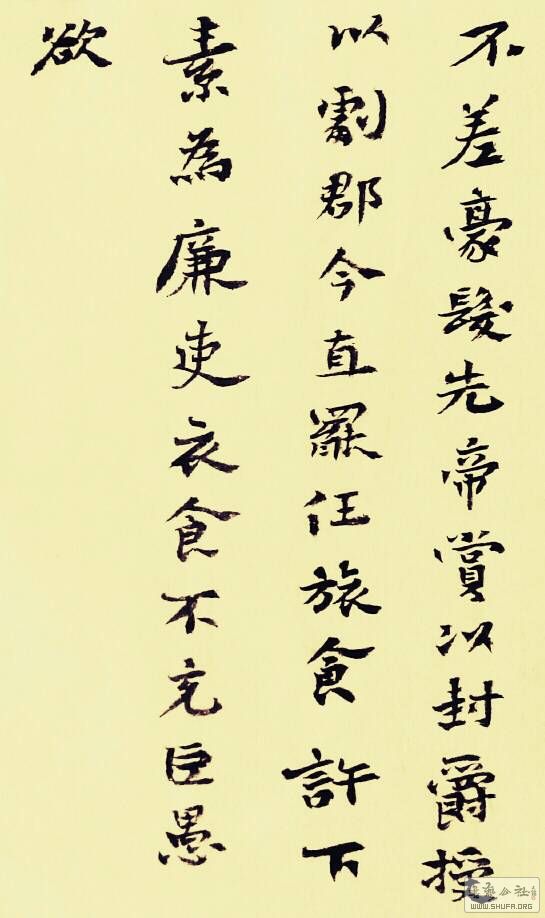 不差豪髮先帝賞以封爵授
以劇郡今直罷任旅食許下
素為廉吏衣食不充臣愚
欲
WWW.SHUFA.ORG